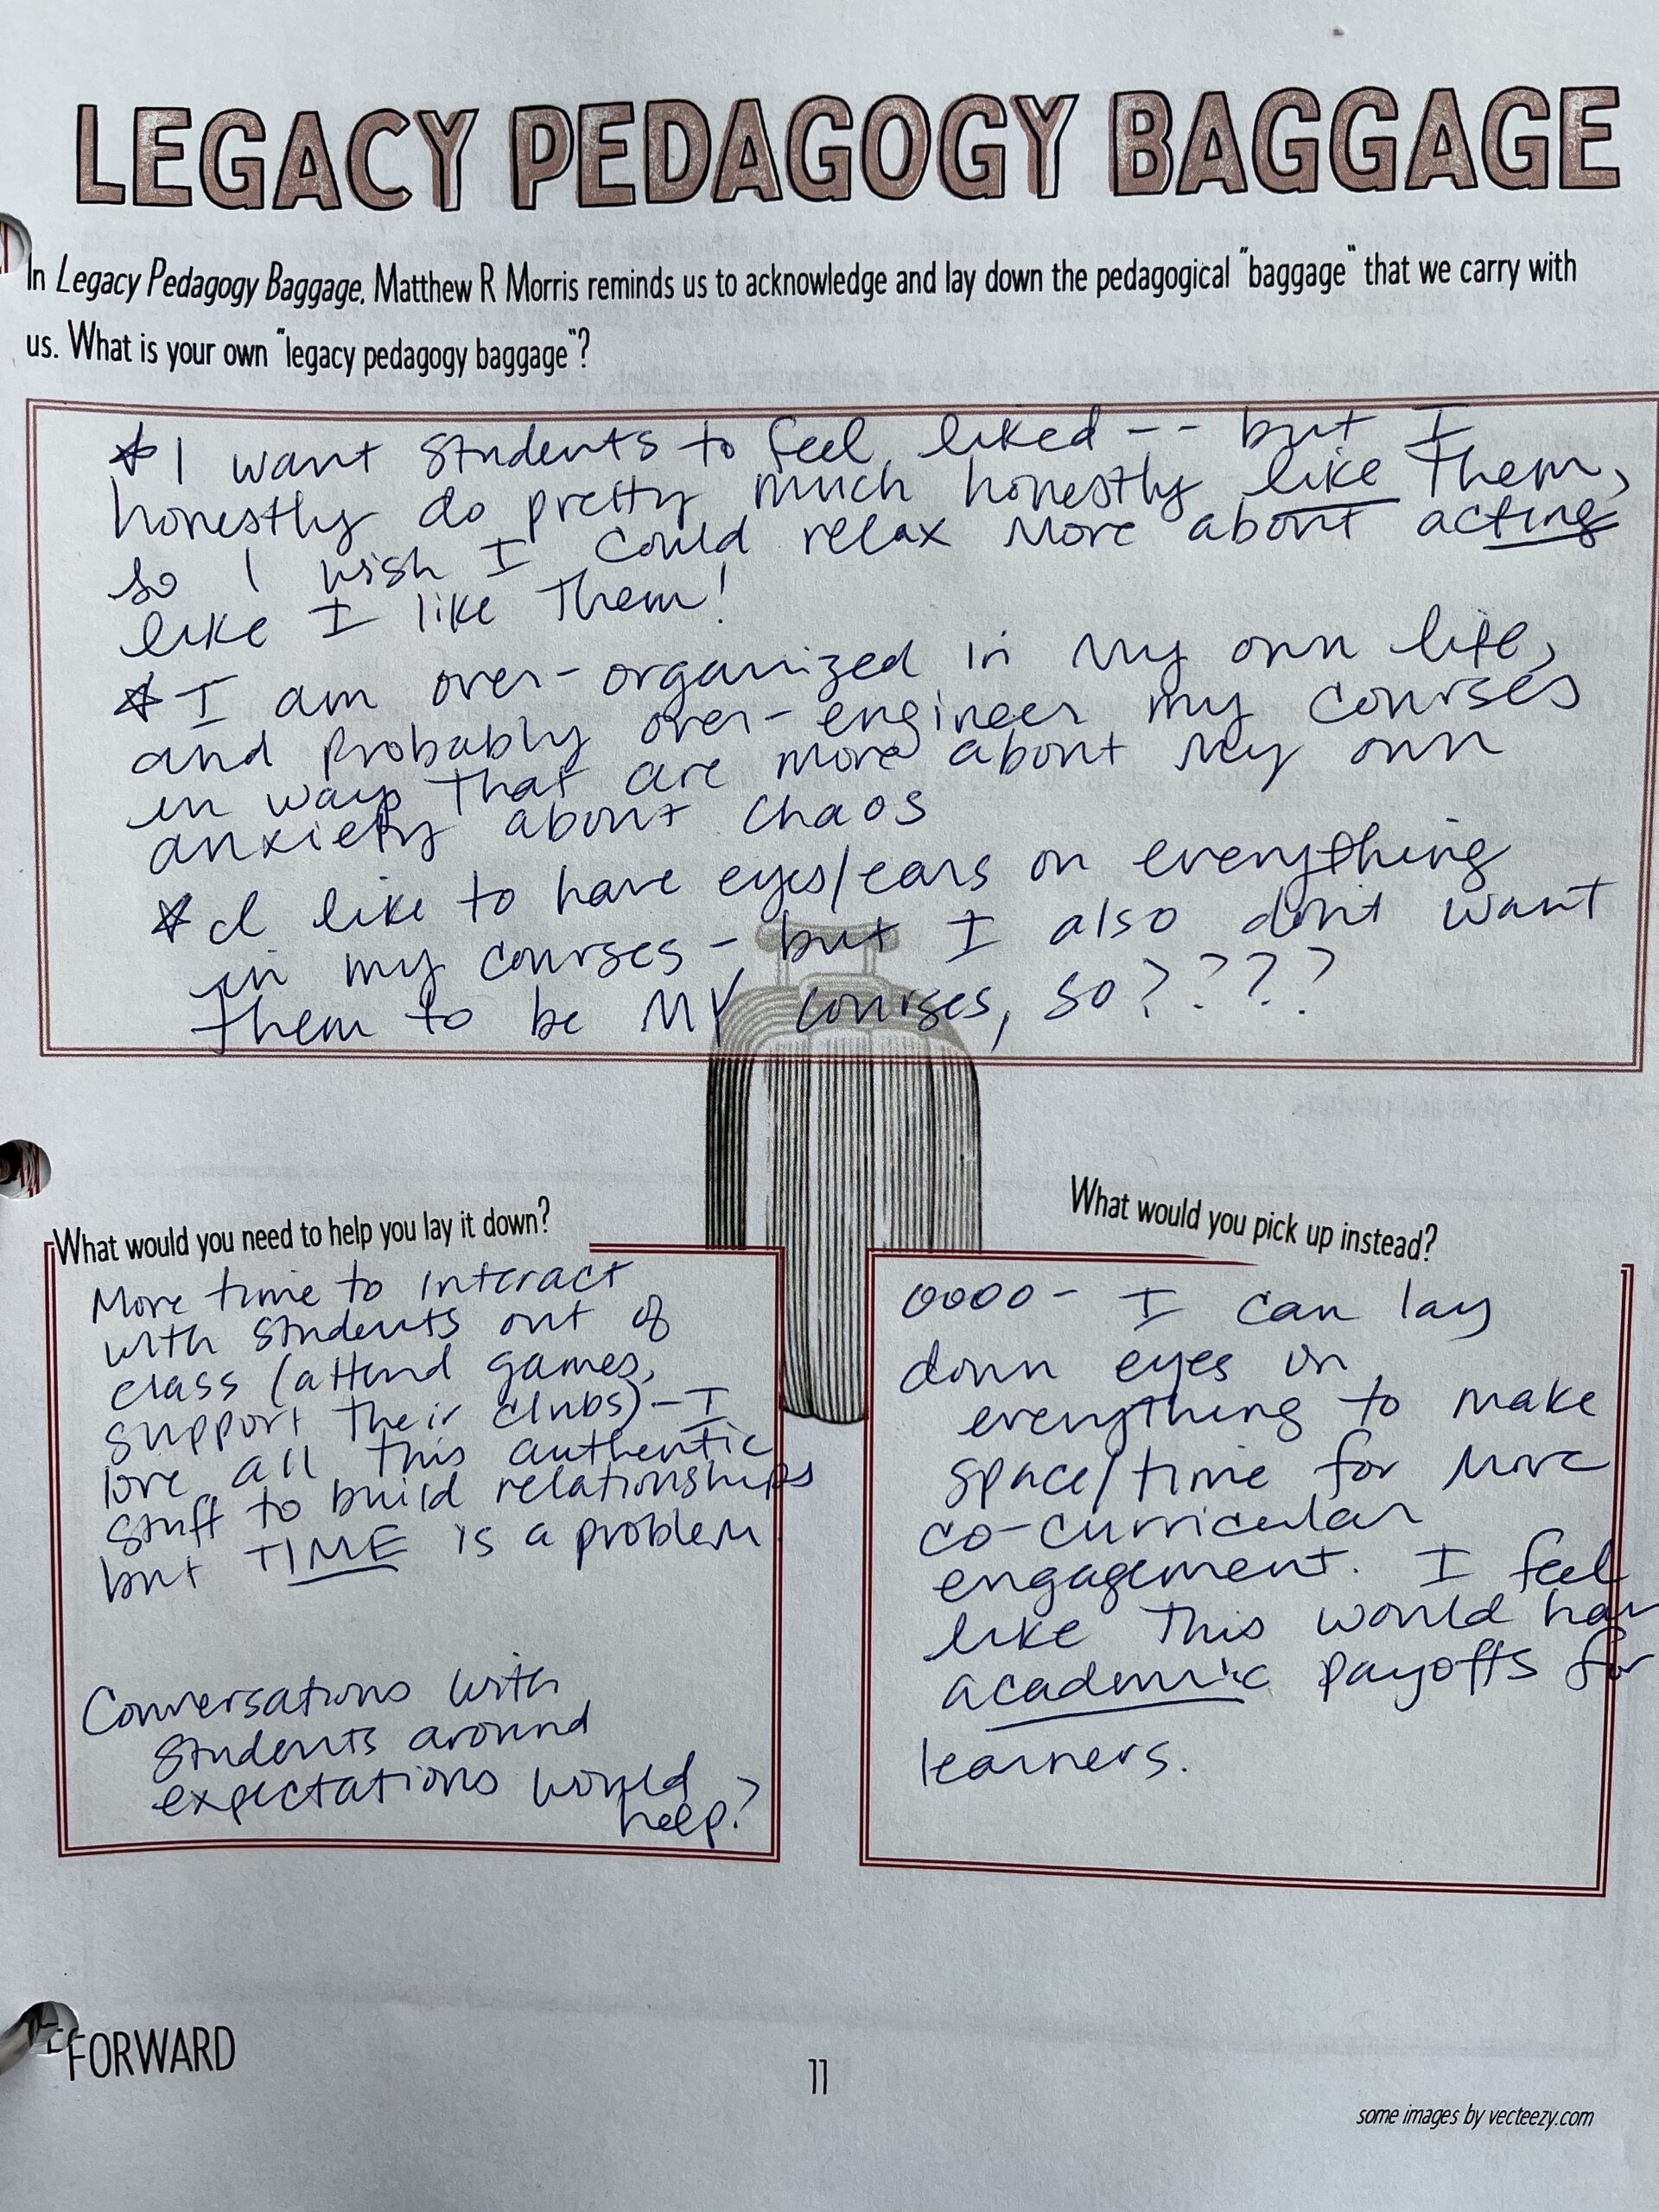 LEGACY PEDAGOGY BAGGAGE
In Legacy Pedagogy Baggage, Matthew R Morris reminds us to acknowledge and lay down the pedagogical "baggage" that we carry with
us. What is your own "legacy pedagogy baggage"?
* I want students to feel liked -- but I
honestly do pretty much honestly like them,
so I wish I could relax more about acting
like I like them!
* I am over-organized in my own life,
and probably over-engineer my courses
in ways that are more about my own
anxiety about chaos
* I like to have eyes/ears on everything
in my courses - but I also don't want
them to be MY courses, so????
What would you need to help you lay it down?
More time to interact
with students out of
class (attend games,
support their clubs) - I
love all this authentic
stuff to build relationships
but TIME is a problem
Conversations with
students around
expectations would
help?
What would you pick up instead?
oooo - I can lay
down eyes on
everything to make
space/time for more
co-curricular
engagement. I feel
like this would hav
academic payoffs for
learners.
FORWARD
11
some images by vecteezy.com